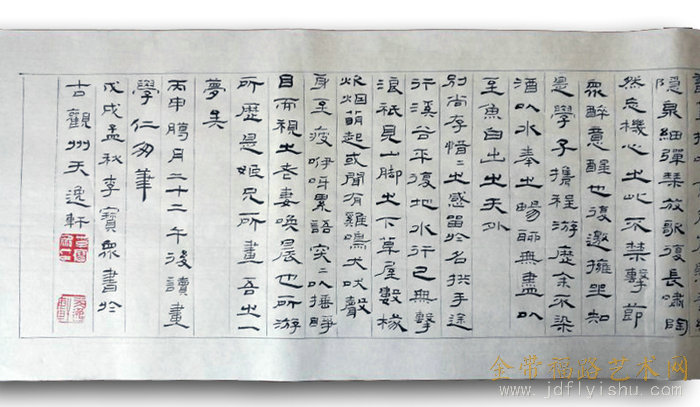 隱泉細彈琴放歌復長嘯陶
然忘機心之此不禁擊節
衆醉意醒也復邀擁坐知
是學子攜程游歷余亦染
酒以水奉之暢聊無盡以
至魚白之出天外
別尚存惜〻之感留於名拱手途
行溪谷平復地水行已無擊
浪祇見山脚之下草屋數椽
炊烟萌起或聞有雞鳴犬吠聲
身至疲咿呀累語突〻以捶睜
目而視之老妻喚晨也所游
所歷是姬兄所畫吾之一
夢矣
丙申臘月二十二午後讀畫
學仁匆筆
戊戌孟秋李寶衆書於
古觀州天逸軒
金带福路艺术网
www.jdflyishu.com